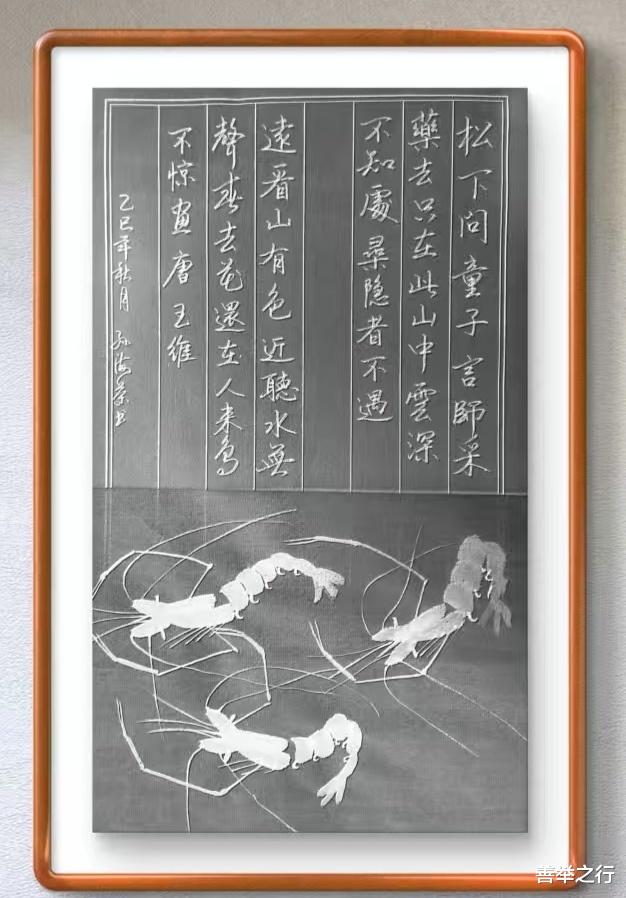 松下问童子言師采
藥去只在此山中雲深
不知處尋隐者不遇
遠看山有色近聽水無
聲春去花還在人来鳥
不惊畫唐王維
乙巳年秋月孙海荣书
善举之行